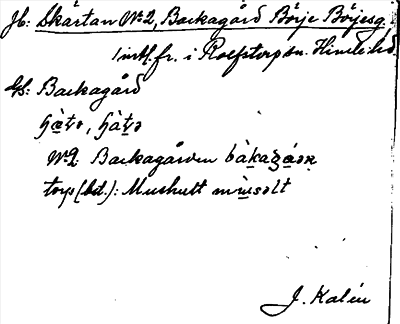 Jb: Skärtan No 2, Backagård Börje Börjesg.
intl. fr. i Rolfstorp sn. Himle hd.
Gs: Backagård
No 2. Backagården bàkagá̱ən̥
torp (bd.): Mushult mù̱səlt
J. Kalén